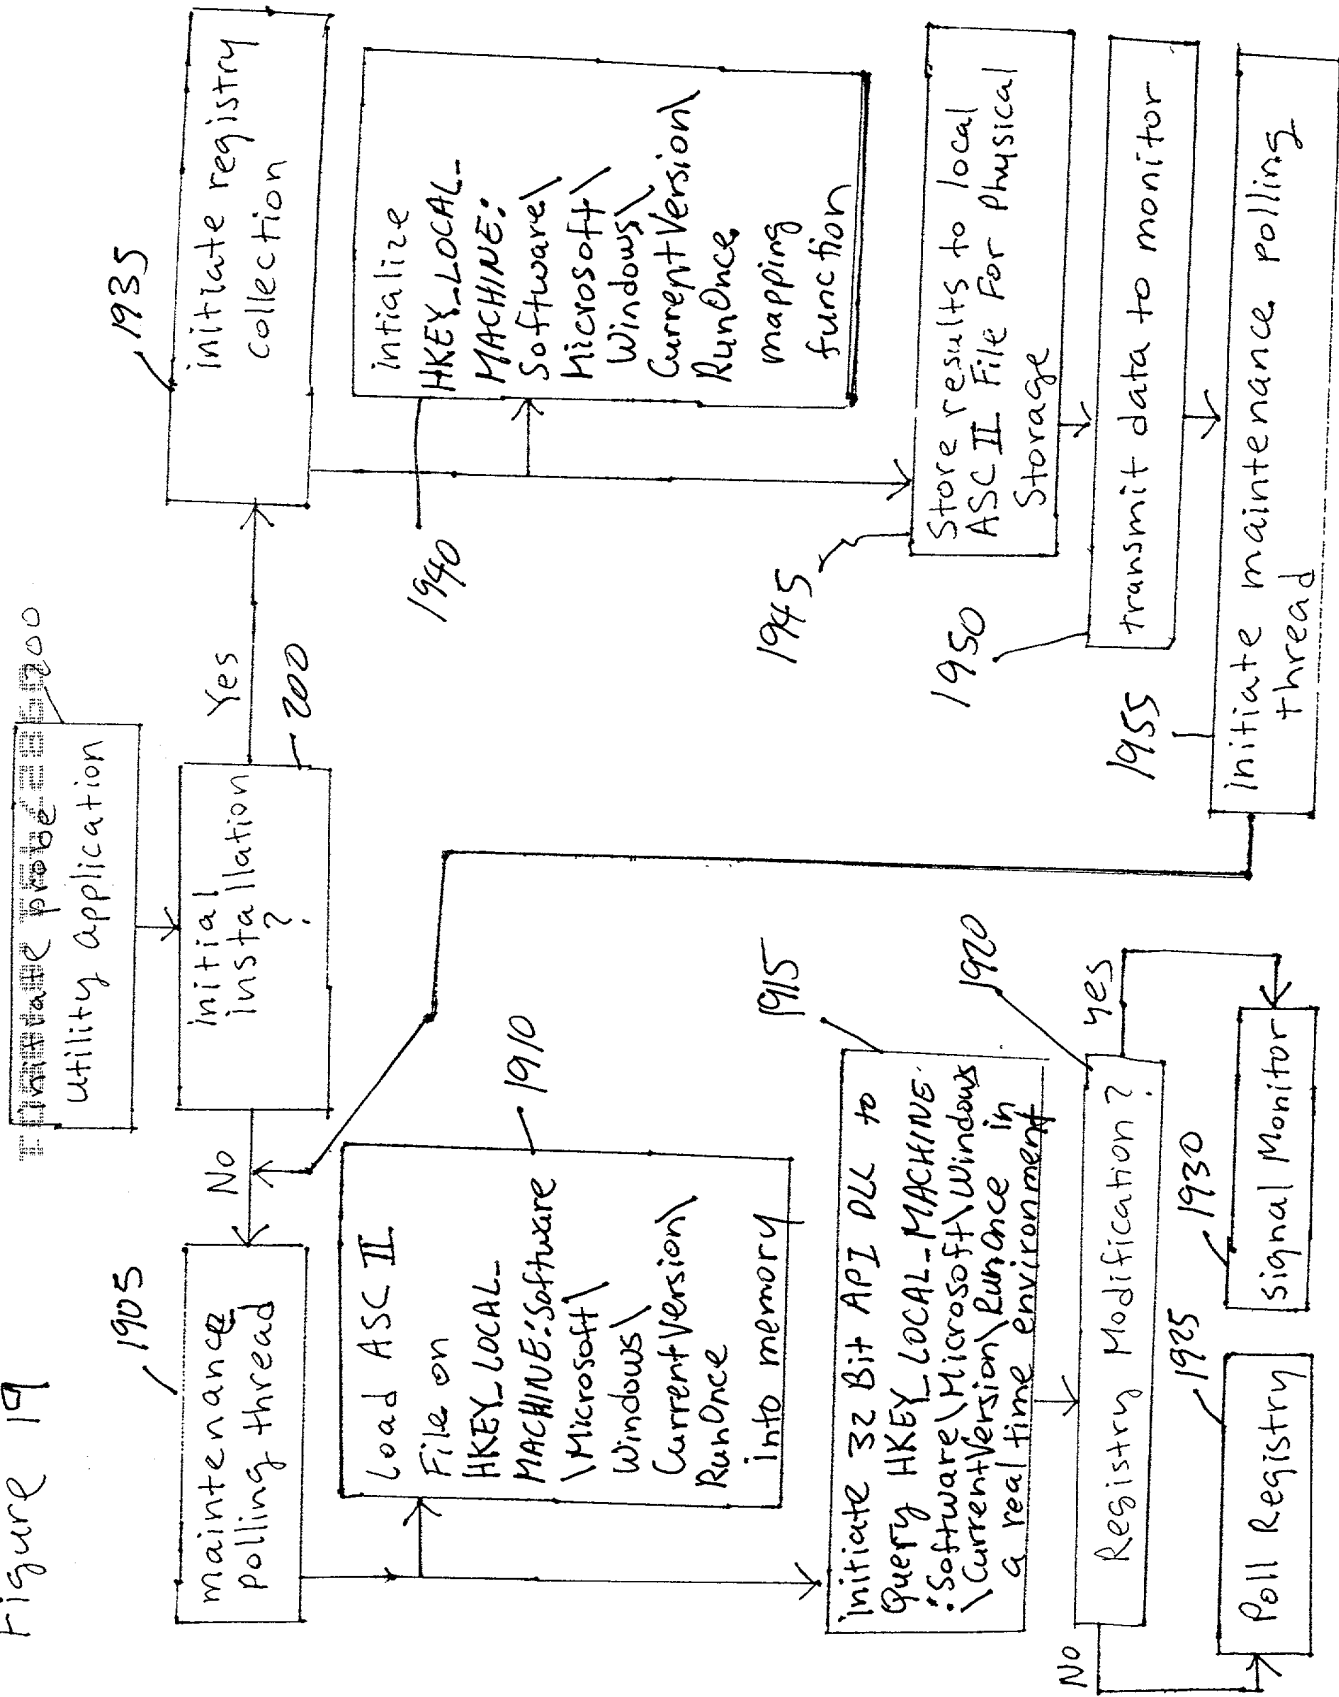 Figure 19
Initiate probe
Utility application
200
initial
installation
?
200
No
Yes
1905
maintenance
polling thread
Load ASC II
File on
HKEY_LOCAL_
MACHINE:Software
\Microsoft\
Windows\
CurrentVersion\
RunOnce
into memory
1910
initiate 32 Bit API DLL to
Query HKEY_LOCAL_MACHINE
:Software\Microsoft\Windows
\CurrentVersion\RunOnce in
a real time environment
1915
Registry Modification?
1920
No
yes
Poll Registry
1925
Signal Monitor
1930
1935
initiate registry
collection
intialize
HKEY_LOCAL_
MACHINE:
Software\
Microsoft\
Windows\
CurrentVersion\
RunOnce
mapping
function
1940
Store results to local
ASC II File For Physical
Storage
1945
transmit data to monitor
1950
initiate maintenance polling
thread
1955